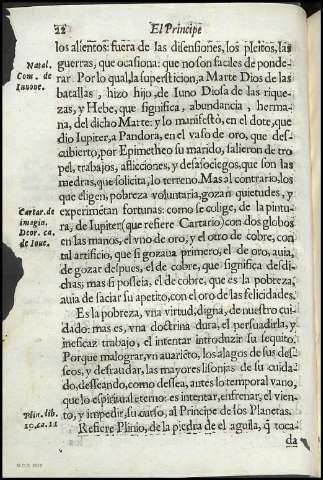 22 El Principe
los alientos: fuera de las disensiones, los pleitos, las
guerras, que ocasiona: que no son faciles de ponde-
rar. Por lo qual, la supersticion, a Marte Dios de las
batallas, hizo hijo, de Iuno Diosa de las rique-
zas, y Hebe, que significa, abundancia, herma-
na, del dicho Marte: y lo manifestò, en el dote, que
dio Iupiter, a Pandora, en el vaso de oro, que des-
cubierto, por Epimetheo su marido, salieron de tro-
pel, trabajos, aflicciones, y desasosiegos, que son las
medras, que solicita, lo terreno. Mas al contrario, los
que eligen, pobreza voluntaria, gozan quietudes, y
experimētan fortunas: como se colige, de la pintu-
ra, de Iupiter (que refiere Cartario) con dos globos
en las manos, el vno de oro, y el otro de cobre, con
tal artificio, que si gozaua primero, el de oro, auia,
de gozar despues, el de cobre, que significa desdi-
chas; mas si posseia, el de cobre, que es la pobreza,
auia de saciar su apetito, con el oro de las felicidades.
Es la pobreza, vna virtud, digna, de nuestro cui-
dado: mas es, vna doctrina dura, el persuadirla, y
ineficaz trabajo, el intentar introducir su sequito.
Porque malograr, vn auariēto, los alagos de sus des-
seos, y defraudar, las mayores lisonjas de su cuida-
do, desseando, como dessea, antes lo temporal vano,
que lo espiritual eterno: es intentar, enfrenar, el vien-
to, y impedir, su curso, al Principe de los Planetas.
Refiere Plinio, de la piedra de el aguila, q̄ toca-
da
Natal.
Com. de
Iunone.
Cartar. de
imagin.
Deor. ca.
de Ioue.
Plin. lib.
10. ca. 11